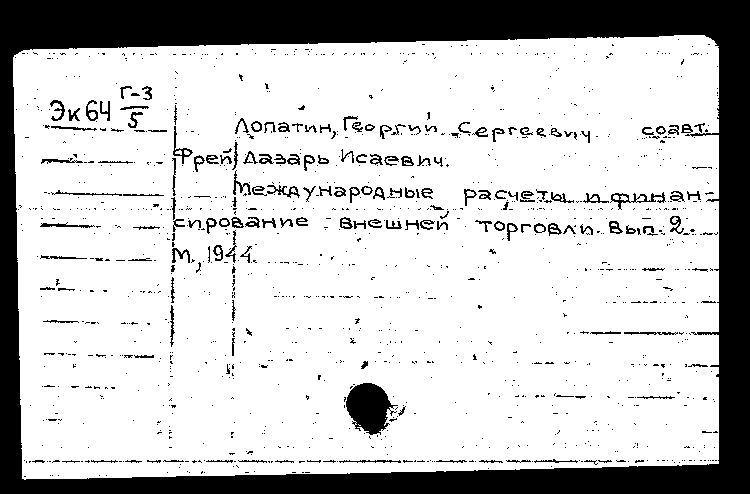 Эк64 Г-3/5
Лопатин, Георгий Сергеевич соавт.
Фрей Лазарь Исаевич.
Международные расчеты и финан-
сирование внешней торговли. Вып. 2.
М., 1944.